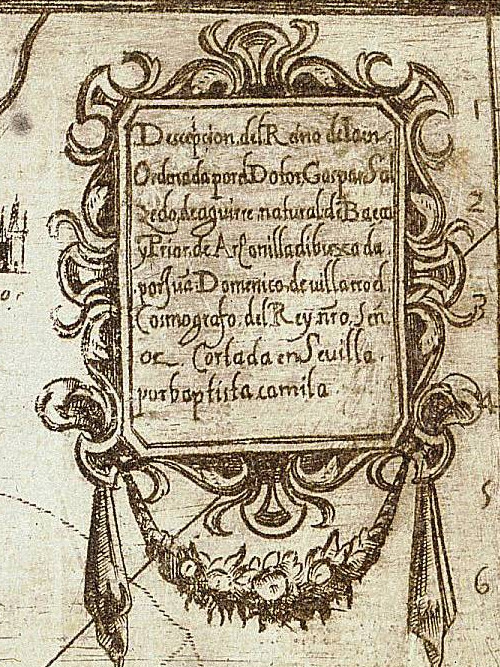 Descripcion. del Reino de Iaen.
Ordenada por el Dotor Gaspar Sal
zedo, de aguirre. natural de Baeça
y Prior. de Arjonilla dibuxada.
por Juã. Domenico. de villarroel.
Cosmografo, del Rey. nr̃o, Señ
or Cortada en Sevilla.
por baptista. camila.
1
2
3
4
5
6
or